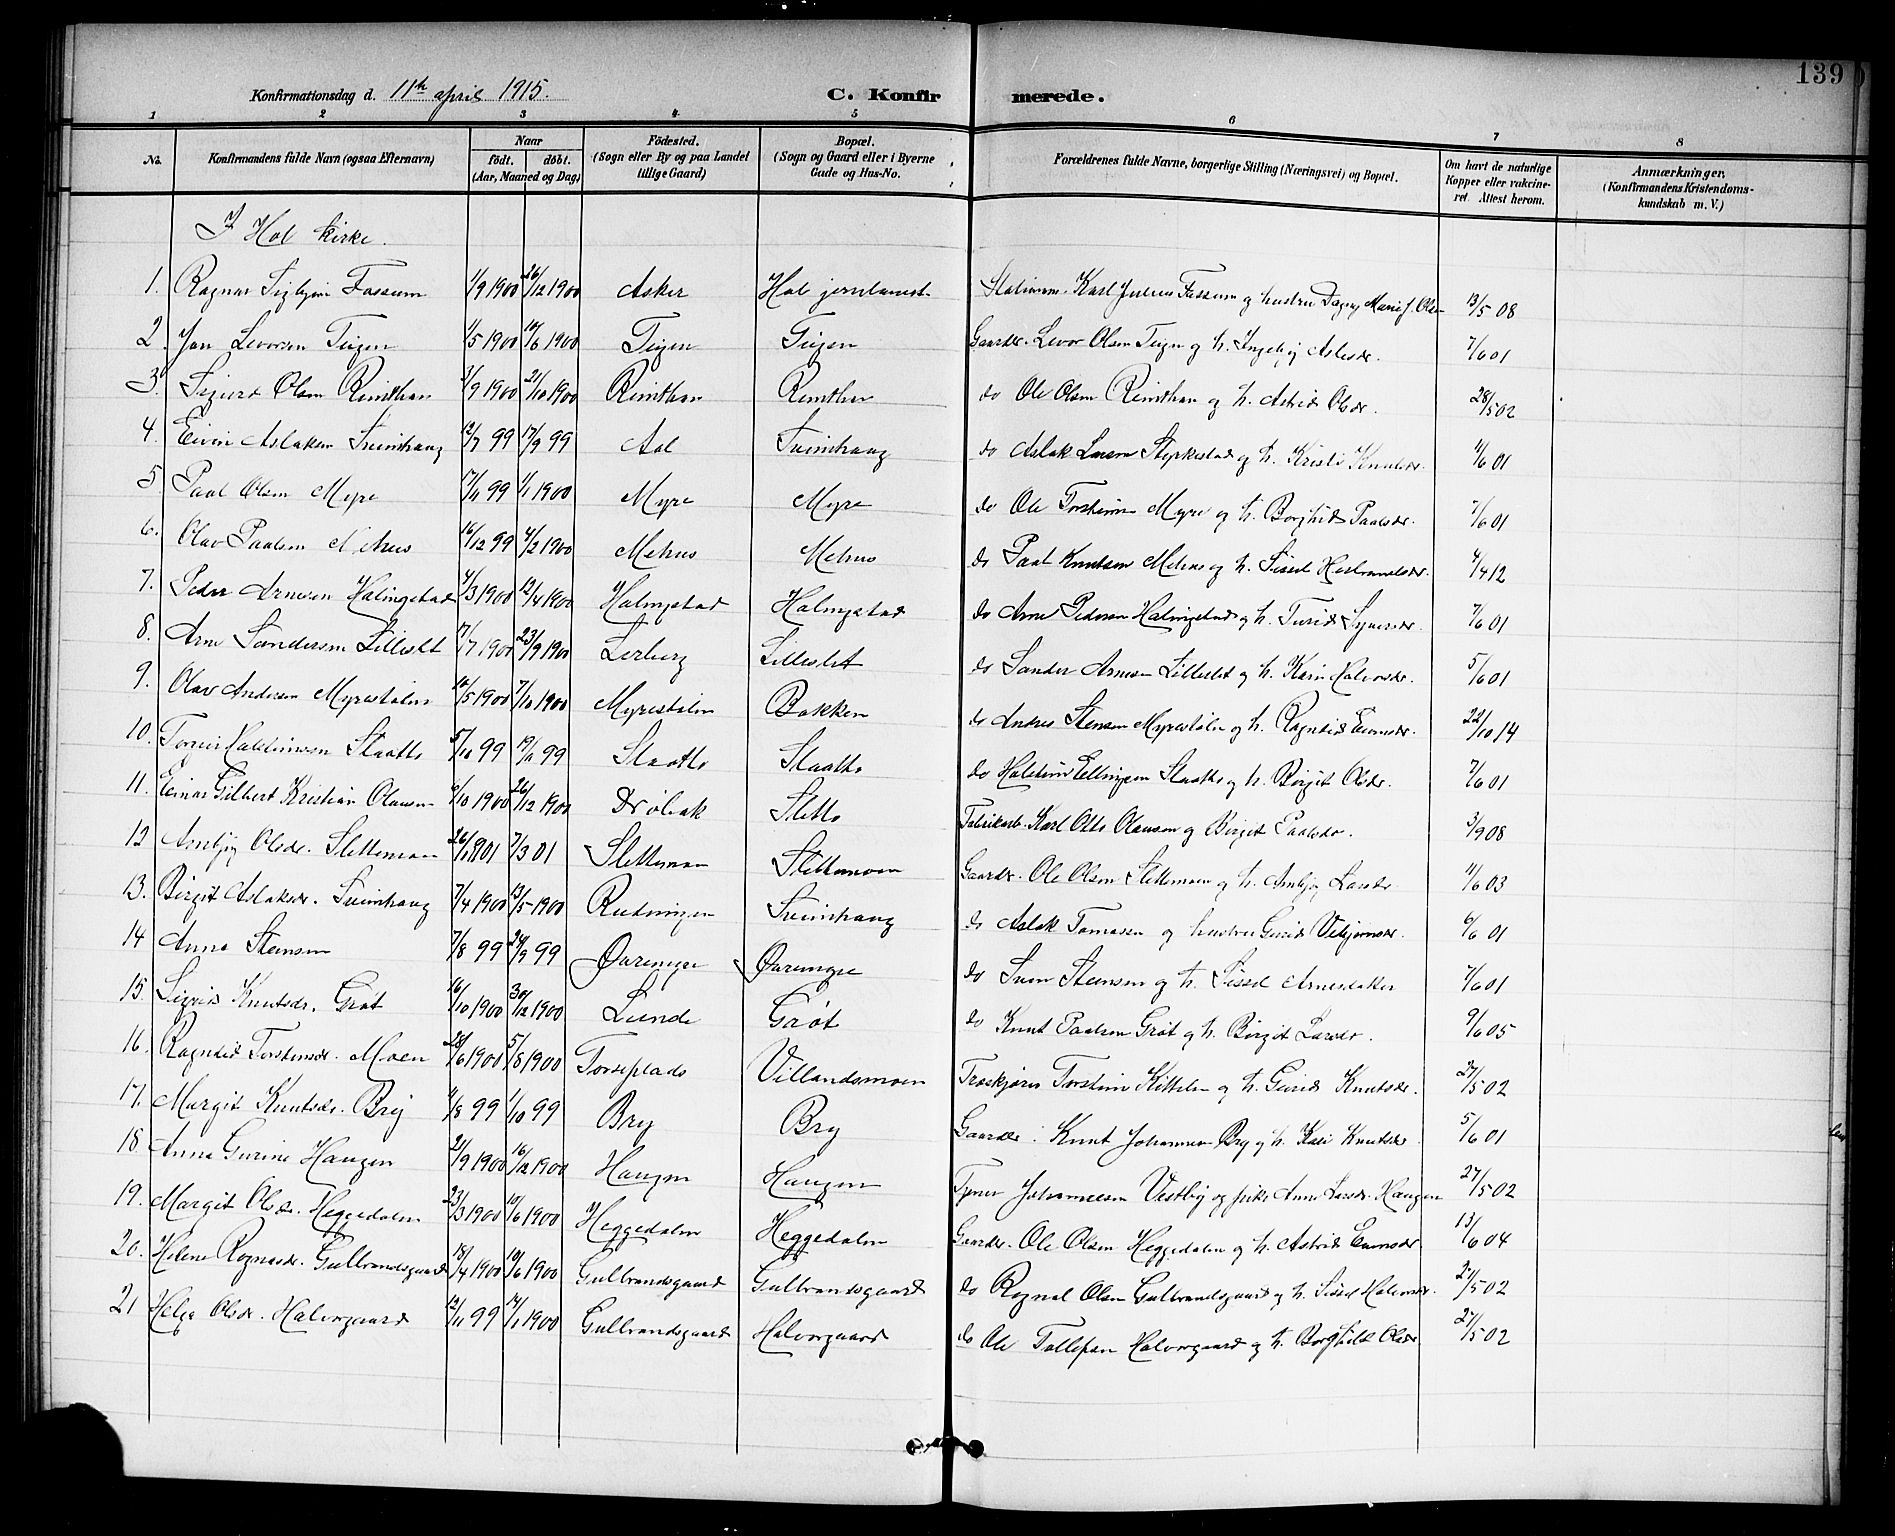 139
Konfirmationsdag d. 11th april 1915.
C. Konfirmerede.
1 2 3 4 5 6 7 8
No. Konfirmandens fulde Navn (ogsaa Efternavn) Naar födt. döbt. (Aar, Maaned og Dag) Födested. (Sogn eller By og paa Landet tillige Gaard) Bopæl. (Sogn og Gaard eller i Byerne Gade og Hus-No. Forældrenes fulde Navne, borgerlige Stilling (Næringsvei) og Bopæl. Om havt de naturlige Kopper eller vakcineret. Attest herom. Anmærkninger. (Konfirmandens Kristendomskundskab m. V.)
I Hol kirke.
1. Ragnar Sigbjørn Fossum 1/9 1900 26/12 1900 Asker Hol jernbanest. Karl Julius Fossum og hustru Dagny Marie J. Olsen 13/5 08
2. Jon Levorsen Teigen 1/5 1900 10/6 1900 Teigen Teigen Gaardbr. Levor Olsen Teigen og h. Ingebjg Aslesdr. 7/6 01
3. Sigurd Olsen Reinthon 3/9 1900 21/10 1900 Reinthon Reinthon do Ole Olsen Reinthon og h. Astrid Olsdr. 28/5 02
4. Eivin Aslaksen Sveinhaug 12/7 99 17/9 99 Aal Sveinhaug do Aslak Larsen Styrkestad og h. Kristi Knutsdr. 11/6 01
5. Paal Olsen Myre 17/11 99 1/1 1900 Myre Myre do Ole Torsteinsen Myre og h. Borghild Paalsdr. 7/6 01
6. Olav Paalsen Mehus 16/12 99 4/2 1900 Mehus Mehus do Paal Knutsen Mehus og h. Sissel 4/4 12
7. Peder Arnesen Holingstad 4/3 1900 12/4 1900 Holingstad Holingstad do Arne Pedersen Holingstad og h. Turid Syversdr. 7/6 01
8. Arne Sandersen Lilleslet 17/7 1900 23/9 1900 Lerberg Lilleslet do Sander Arnesen Lilleslet og h. Kari Halvorsdr. 5/6 01
9. Olav Andersen Myrestølen 10/5 1900 7/10 1900 Myrestølen Bakken do Anders Steinsen Myrestølen og h. Ragnhild Eivinsdr. 22/10 14
10. Torgeir Halsteinsen Slaatto 5/10 99 19/11 99 Slaatto Slaatto do Halstein Ellingsen Slaatto og h. Birgit Olsdr. 7/6 01
11. Einar Gilbert Kristian Olausen 6/10 1900 26/12 1900 Drøbak Sletto Fabrikarb. Karl Otto Olausen og Birgit Paalsdr. 3/9 08
12 Arnbjg Olsdr. Slettemoen 26/1 1901 7/3 01 Slettemoen Slettemoen Gaardbr. Ole Olsen Slettemoen og h. Arnbjg Larsdr. 11/6 03
13. Birgit Aslaksdr. Sveinhaug 7/4 1900 13/5 1900 Rudningen Sveinhaug do Aslak Tomassen og hustru Guri Vebjørnsdr. 6/6 01
14 Anna Steinsen 7/8 99 24/9 99 Øvremyre Øvremyre do Svein Steinsen og h. Sissel Arnesdatter 7/6 01
15. Sigrid Knutsdr. Grøt 16/10 1900 30/12 1900 Lunde Grøt do Knut Paalsen Grøt og h. Birgit Larsdr. 9/6 05
16. Ragnhild Torsteinsdr. Moen 28/6 1900 5/8 1900 Torseplads Villandsmoen Træskjærer Torstein Kittelsen og h. Guri Knutsdr. 27/5 02
17. Margit Knutsdr. Bry 4/8 99 1/10 99 Bry Bry Gaardbr. Knut Johannesen Bry og h. Kari Knutsdr. 5/6 01
18. Anna Gurine Haugen 21/9 1900 16/12 1900 Haugen Haugen Johannesen Vestby og pike Anne Larsdr. Haugen 27/5 02
19. Margit Olsdr. Heggedalen 23/3 1900 10/6 1900 Heggedalen Heggedalen Gaardbr. Ole Olsen Heggedalen og h. Astrid Eivinsdr. 13/6 04
20. Helene Rognesdr. Gulbrandsgaard 18/4 1900 10/6 1900 Gulbrandsgaard Gulbrandsgaard do Rognal Olsen Gulbrandsgaard og h. Sissel Halvorsdr. 27/5 02
21 Helga Olsdr. Halvorgaard 12/11 99 14/1 1900 Gulbrandsgaard Halvorgaard do Ole Tollefsen Halvorgaard og h. Borghild Olsdr. 27/5 02